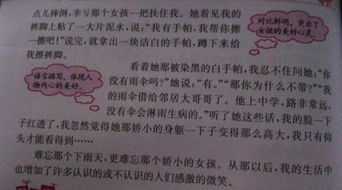 点儿摔倒,幸亏那个女孩一把扶住我。她看见我的
裤脚上粘了一大片泥水,说:“我有手帕,我帮你擦
一擦吧!”说完,就拿出一块洁白的手帕,蹲下来给
我擦裤脚。
对比鲜明,突出了
女孩的美好心灵。
看着她那被染黑的白手帕,我忍不住问她:“你
没有雨伞吗?”她说:“有。”“那你为什么不带?”“我
的雨伞借给邻居大哥哥了。他上中学,路非常远,
没有伞会淋雨生病的。”听了她这些话,我的脸一下
子红透了,我忽然觉得她那娇小的身躯一下子变得那么高大,我只有仰
头才能看得到……
语言描写,体现人
物内心的美好。
难忘那个下雨天,更难忘那个娇小的女孩。从那以后,我的生活中
也增加了许多认识的或不认识的人们感激的微笑。